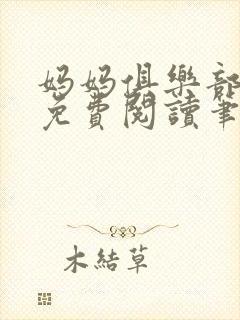 妈妈俱樂部
免費閱讀筆
木結草